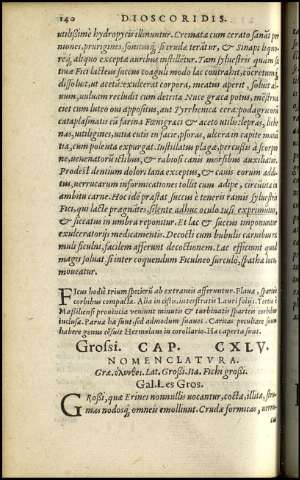 140 DIOSCORIDIS.
utilißimè hydropicis illinuntur. Crematæ cum cerato sanāt per
niones, pruriginos,
reā, aliquo excepta auribus instilletur. Tam syluestris quàm sa
tiuæ Fici lacteus succus coaguli modo lac contrahit, cōcretumq́
dissoluit, ut aceta: exulcerat corpora, meatus aperit, soluit al-
uum, uuluam
ciet cum luteo oui appositus, aut Tyrrhenica cera: podagricis
cataplasmatis cū farina Fœnigræci & aceto utilis: lepras, liche-
nas, uitiligines, uitia cutis in facie, psoras, ulcera in capite manā
tia, cum polenta expurgat. Instillatus plagæ, percußis à scorpio
ne, uenenatorū ictibus, & rabiosi canis morsibus auxiliatur.
Prodest dentium dolori lana exceptus, & cauis eorum addi-
tus, uerrucarum informicationes tollit cum adipe, circūlita in
ambitu carne. Hoc idē præstat succus è teneris ramis syluestris
Fici, qui lacte prægnātes, silente adhuc oculo sui exprimitur,
& siccatus in umbra reponitur. Et lac & succus imponuntur
exulceratorijs medicamentis. Decocti cum bubulis carnibus ra
muli ficulni, facilem afferunt decoctionem. Lac efficiunt quoq́
magis soluat si inter coquendum Ficulneo surculo, spatha loco
moueatur.
Ficus hodiè trium specierū ab extraneis afferuntur. Planæ, spartiis
corbibus compactæ. Aliæ in cistis,
Maßiliensi prouincia veniunt minutiæ & turbinatis sparteis corbibus
inclusæ. Paruæ hæ sunt sed admodum suaues.
habere genus censuit Hermolaus in corollario. Hæc aperta sunt.
Grossi. CAP. CXLV.
NOMENCLATVRA.
Græ. ὄλυνθοι. Lat. Großi. Ita. Fichi großi.
Gal. Les Gros.
GRoßi, quæ Erineæ nonnullis uocantur, coctæ, illitæ, stru-
mas nodosq́ omneis emolliunt. Crudæ formicas,